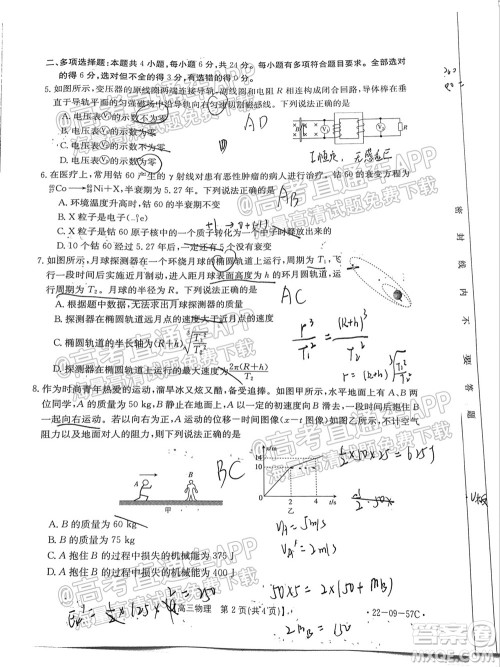 二、多项选择题：本题共 4 小题，每小题 6 分，共 24 分。每小题有多项符合题目要求。全部选对
的得 6 分，选对但不全的得 3 分，有选错的得 0 分。
5. 如图所示，变压器的原线圈两端连接导轨，副线圈和电阻 R 相连构成闭合回路，导体棒在垂
直于导轨平面的匀强磁场中沿导轨向右匀速切割磁感线。下列说法正确的是
A. 电压表V₁的示数不为零
B. 电压表V₁的示数为零
C. 电压表V₂的示数不为零
D. 电压表V₂的示数为零
AD
I恒定，无感应
6. 在医疗上，常用钴 60 产生的 γ 射线对患有恶性肿瘤的病人进行治疗。钴 60 的衰变方程为
⁶⁰₂₇Co⟶⁶⁰₂₈Ni+X，半衰期为 5.27 年。下列说法正确的是
A. 环境温度变化，钴 60 的半衰期不变
B. X 粒子是电子(⁰₋₁e)
C. X 粒子是由钴 60 原子核内的一个质子转化产生的
D. 10 个钴 60 经过 5.27 年后，一定还有 5 个没有衰变
AB
7. 如图所示，月球探测器在一个环绕月球的椭圆轨道上运行，周期为 T₁，飞
行一段时间后实施近月制动，进入距月球表面高度为 h 的环月圆轨道，运
行周期为 T₂。月球的半径为 R。下列说法正确的是
A. 根据题中数据，无法求出月球探测器的质量
B. 探测器在椭圆轨道上运行时，在远月点的速度大于近月点的速度
C. 椭圆轨道的半长轴为(R+h)∛(T₁²/T₂²)
D. 探测器在椭圆轨道上运行的最大速度为 2π(R+h)/T₂
AC
r³/T₁² = (R+h)³/T₂²
r=(R+h)∛(T₁²/T₂²)
8. 作为时尚青年热爱的运动，溜旱冰又炫又酷，备受追捧。如图甲所示，水平地面上有 A、B 两
位同学，A 的质量为 50 kg，B 静止，A 以一定的初速度向右运动，一段时间后抱住 B，然后
一起向右运动。若以向右为正方向，A 运动的位移—时间图像(x−t 图像)如图乙所示，不计空气
阻力以及地面对人的阻力，则下列说法正确的是
BC
甲
x/m
10
5
0
2
4
t/s
乙
½×50×25=625J
A. B 的质量为 60 kg
B. B 的质量为 75 kg
C. A 抱住 B 的过程中损失的机械能为 375 J
V_A=5m/s
V_A'=2m/s
50×5=2×(50+m_B)
2m_B=150
高三物理 第 2 页(共 4 页)】
·22-09-57C·
密 封 线 内 不 要 答 题
@高考直通车APP
海量高清试题免费下载